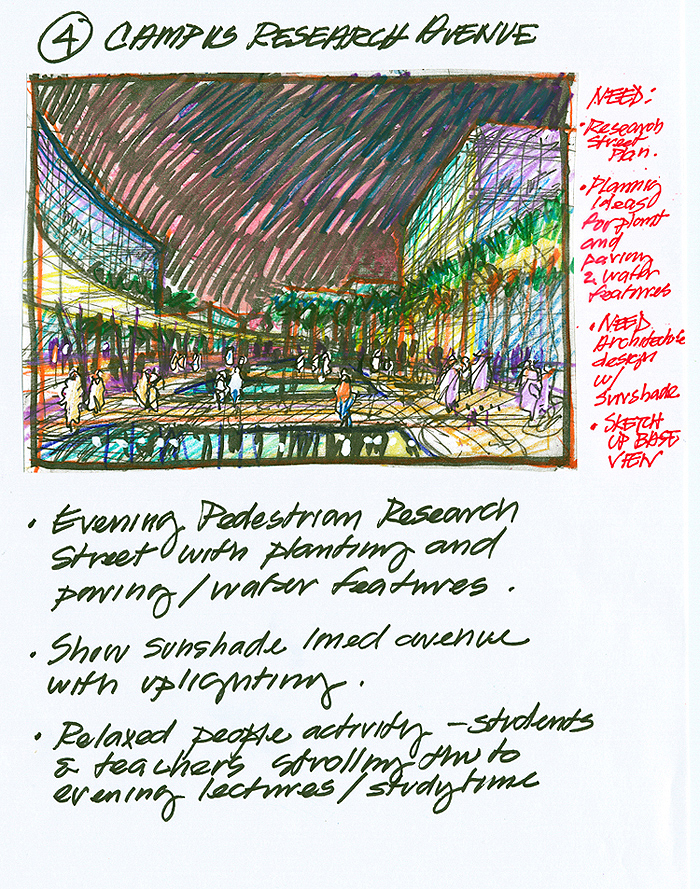 4 CAMPUS RESEARCH AVENUE
NEED:
• Research
Street
Plan.
• Planning
Ideas
for plant
and
paving
& water
features
• NEED
Architecture
design
w/
sunshade
• SKETCH
UP BASE
VIEW
• Evening Pedestrian Research
Street with planting and
paving / water features.
• Show sunshade lined avenue
with uplighting.
• Relaxed people activity – students
& teachers strolling thru to
evening lectures / study time